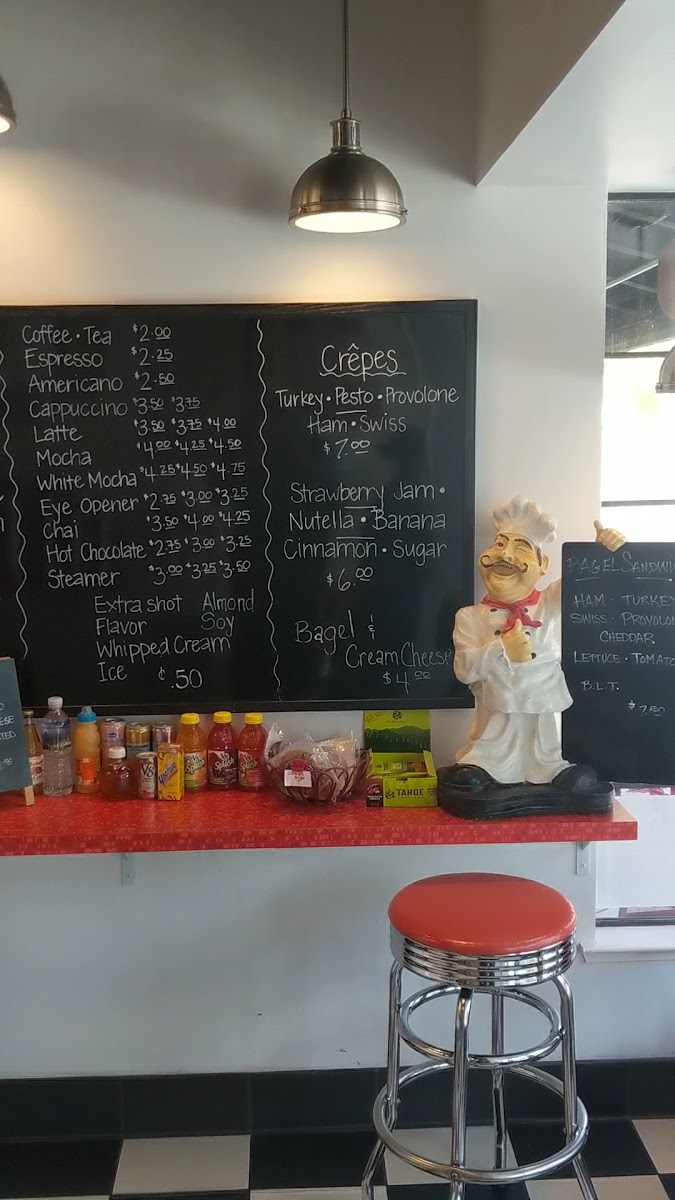 Coffee • Tea $2.00
Espresso $2.25
Americano $2.50
Cappuccino $3.50 $3.75
Latte $3.50 $3.75 $4.00
Mocha $4.00 $4.25 $4.50
White Mocha $4.25 $4.50 $4.75
Eye Opener $2.75 $3.00 $3.25
Chai $3.50 $4.00 $4.25
Hot Chocolate $2.75 $3.00 $3.25
Steamer $3.00 $3.25 $3.50
Extra shot Almond
Flavor Soy
Whipped Cream
Ice ¢.50
Crêpes
Turkey • Pesto • Provolone
Ham • Swiss
$7.00
Strawberry Jam •
Nutella • Banana
Cinnamon • Sugar
$6.00
Bagel &
Cream Cheese
$4.00
BAGEL SANDWI
HAM • TURKEY
SWISS • PROVOLON
CHEDDAR
LETTUCE • TOMATO
B.L.T.
$7.50
V8
Splash
Splash
Splash
TAHOE